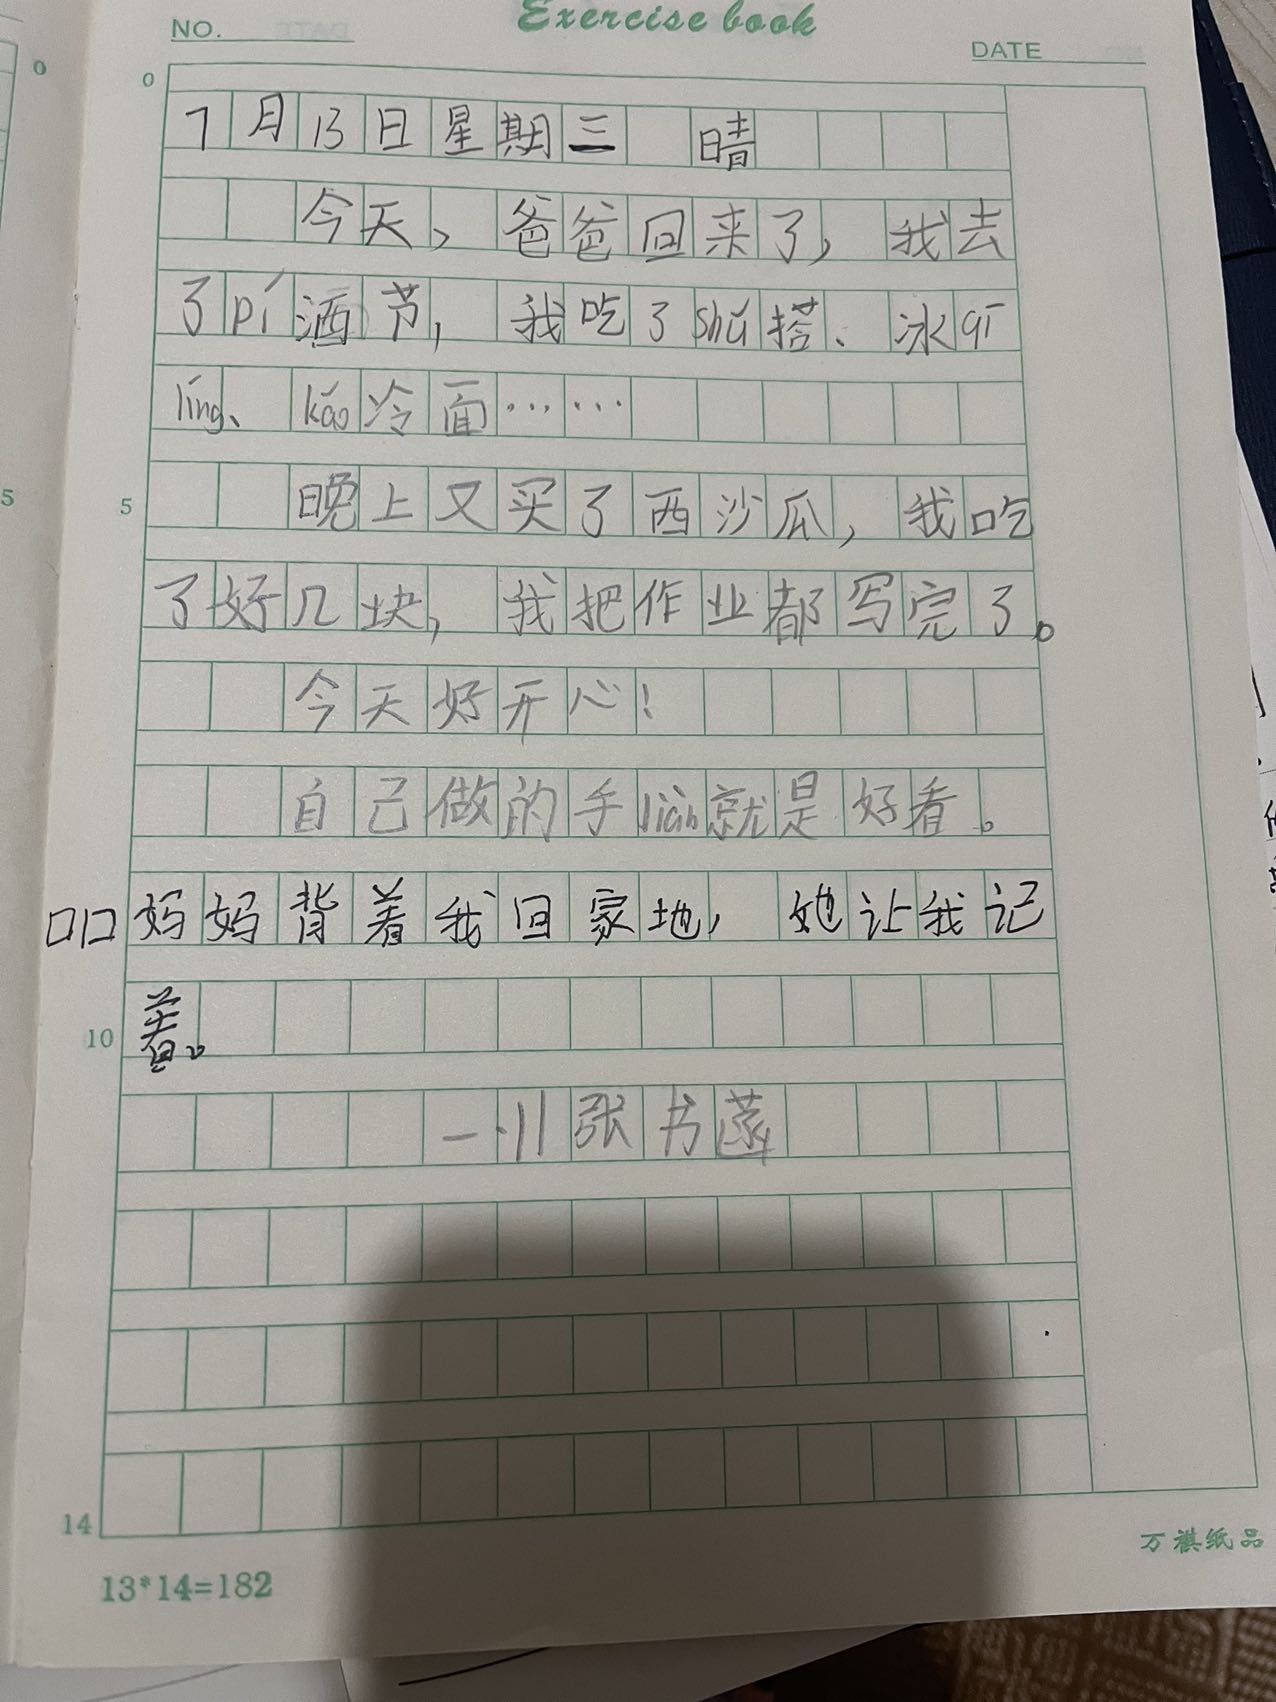 Exercise book
NO.
DATE
0
0
7月13日星期三 晴
今天,爸爸回来了,我去
了pí酒节,我吃了shǔ搭、冰qī
líng、kǎo冷面……
5
5
晚上又买了西沙瓜,我吃
了好几块,我把作业都写完了。
今天好开心!
自己做的手liàn就是好看。
口口妈妈背着我回家地,她让我记
着。
10
张书
14
万祺纸品
13*14=182